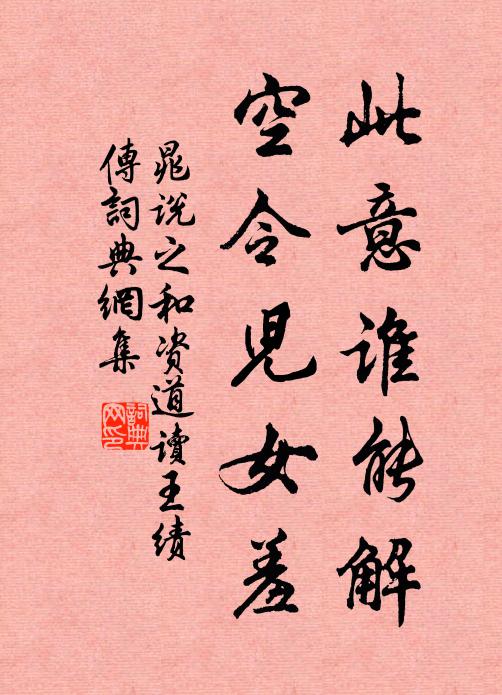 此意谁能解
空令兒女羞
晁说之和资道讀王绩
傳詞典網集
詞典
网印